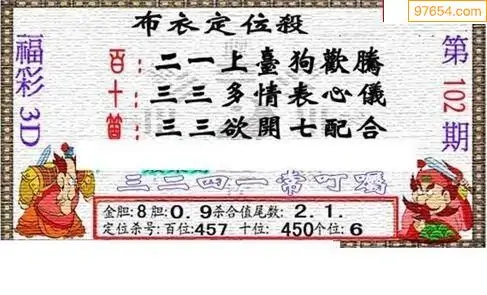 97654.com
布衣定位殺
福彩3D
第102期
百:二一上臺狗歡騰
十:三三多情表心儀
箇:三三欲開七配合
三二四一常叮嚀
金胆:8胆:0.9杀合值尾数:2.1.
定位杀号:百位:457 十位:450个位:6